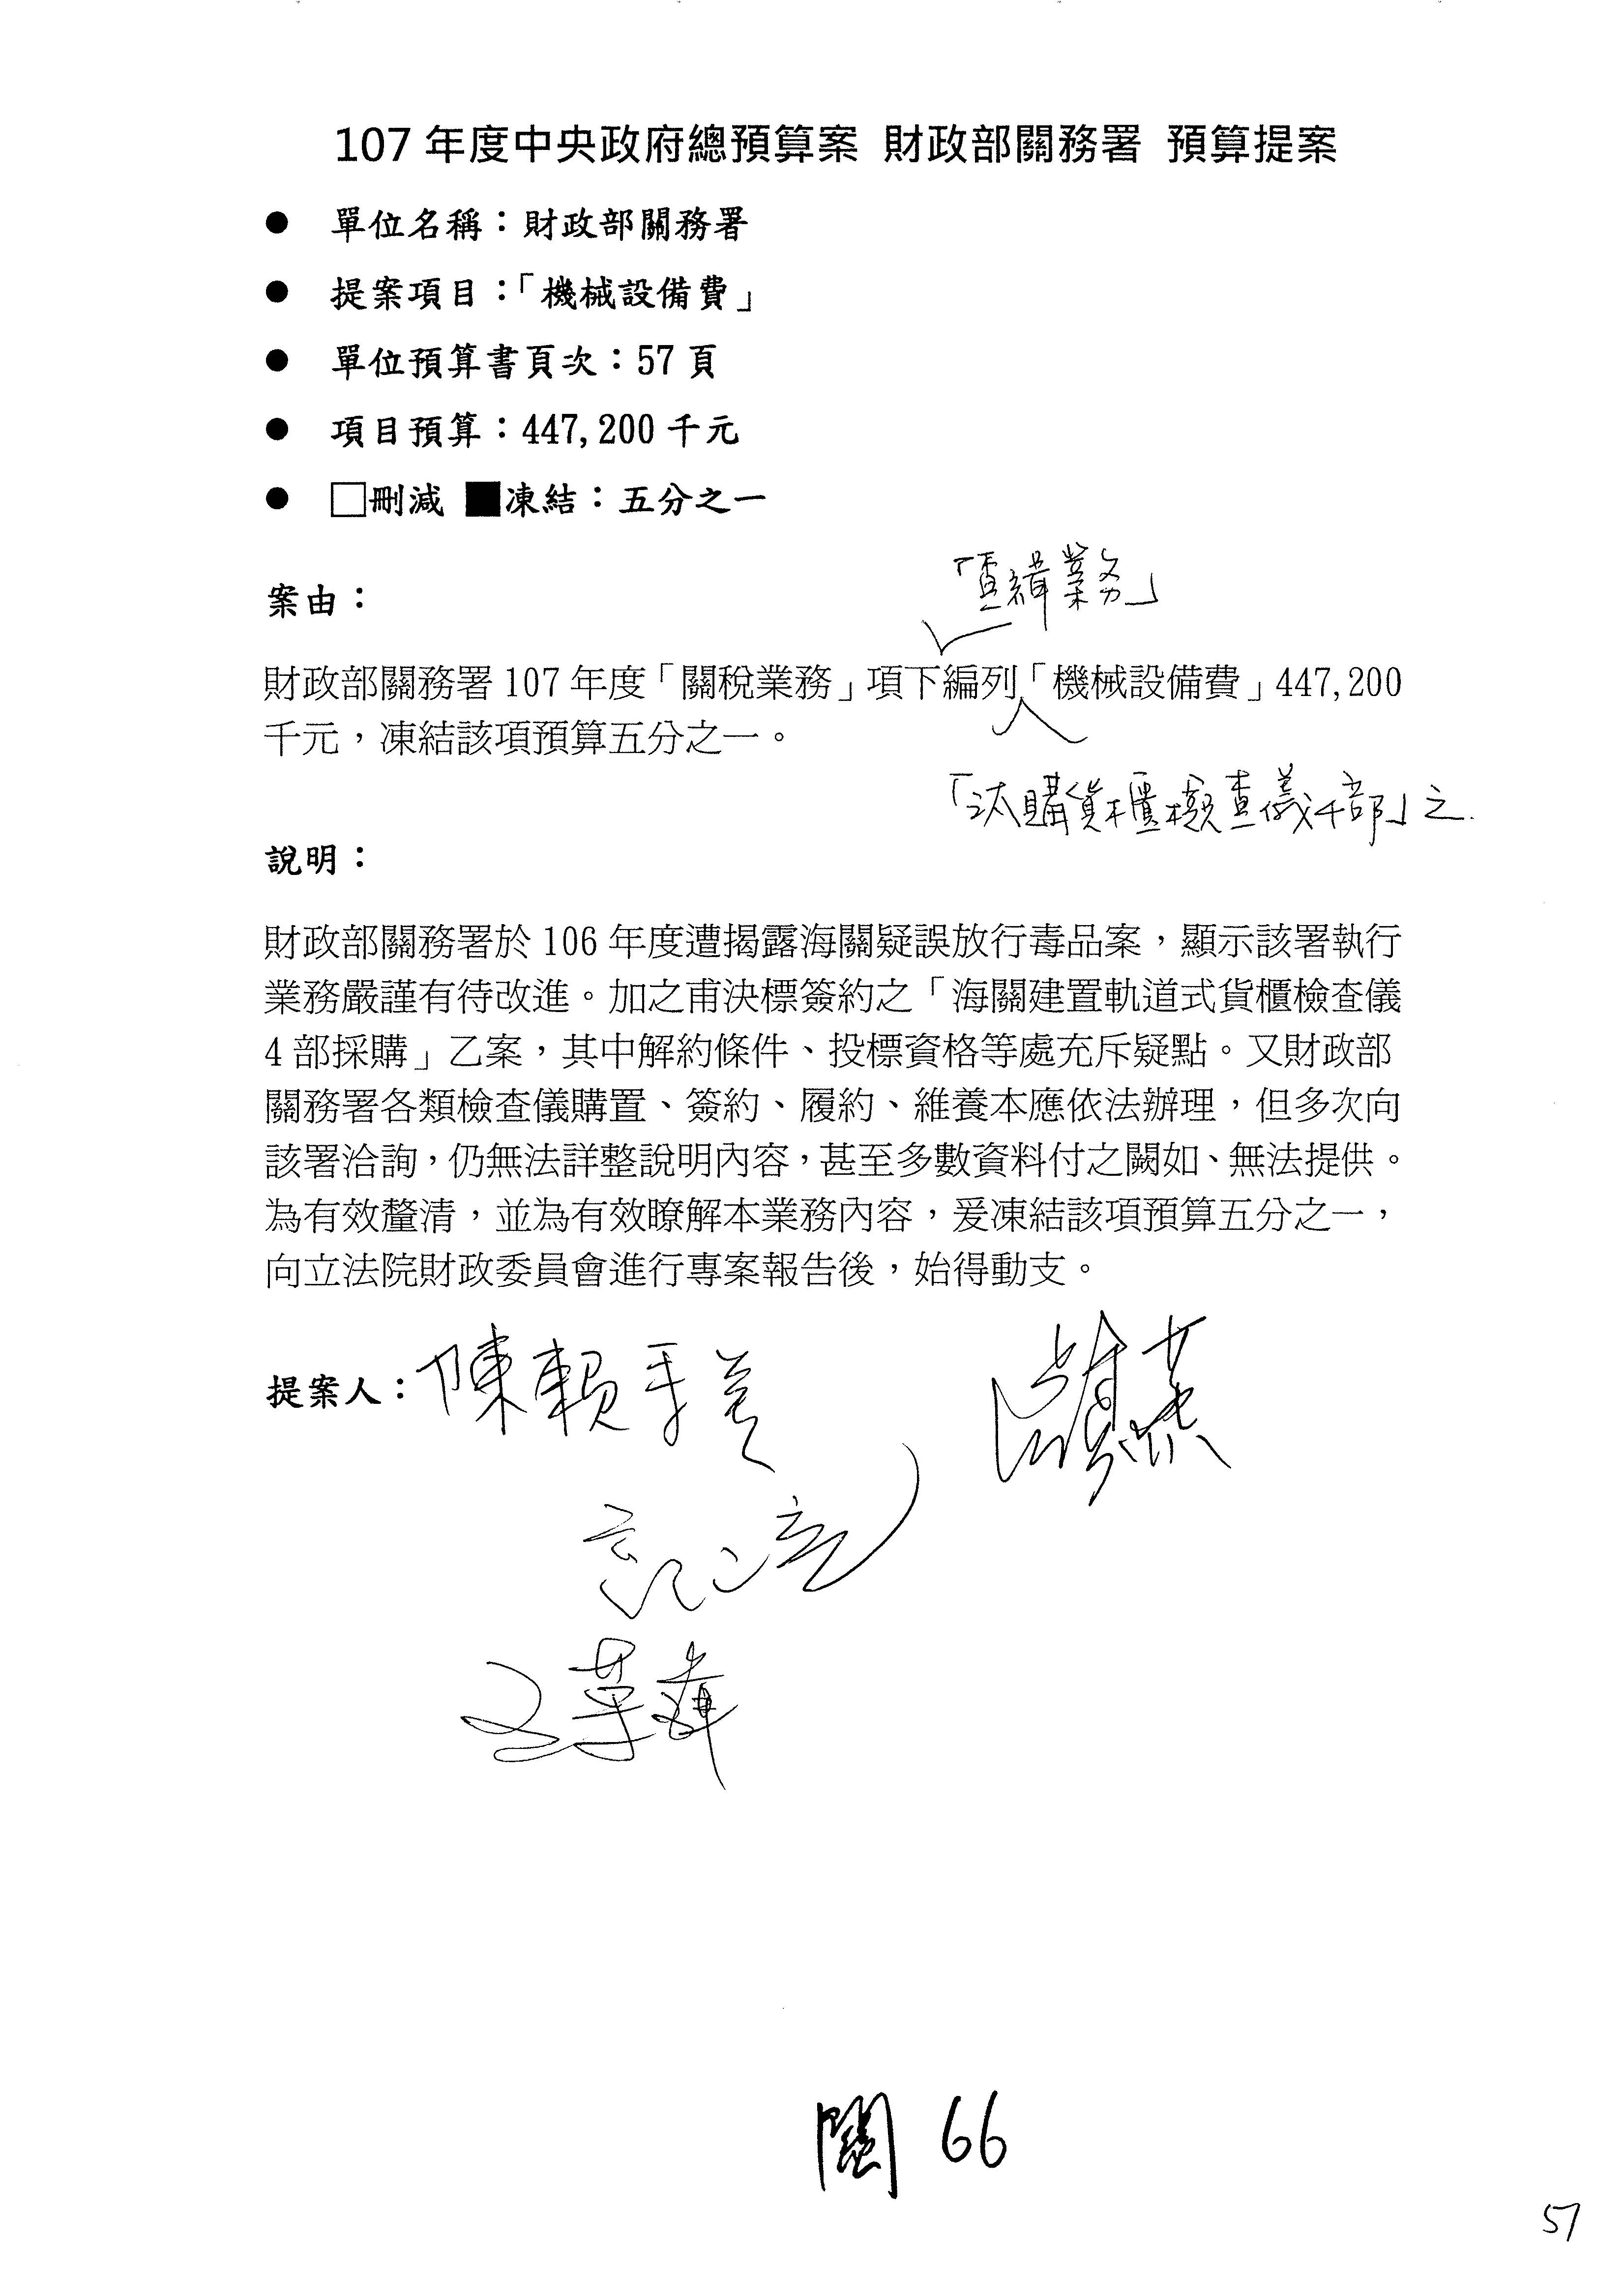 107 年度中央政府總預算案 財政部關務署 預算提案
● 單位名稱：財政部關務署
● 提案項目：「機械設備費」
● 單位預算書頁次：57 頁
● 項目預算：447,200 千元
● □刪減 ■凍結：五分之一
「查緝業務」
案由：
財政部關務署 107 年度「關稅業務」項下編列「機械設備費」447,200
千元，凍結該項預算五分之一。
購貨櫃檢查儀 部」之
說明：
財政部關務署於 106 年度遭揭露海關疑誤放行毒品案，顯示該署執行
業務嚴謹有待改進。加之甫決標簽約之「海關建置軌道式貨櫃檢查儀
4 部採購」乙案，其中解約條件、投標資格等處充斥疑點。又財政部
關務署各類檢查儀購置、簽約、履約、維養本應依法辦理，但多次向
該署洽詢，仍無法詳整說明內容，甚至多數資料付之闕如、無法提供。
為有效釐清，並為有效瞭解本業務內容，爰凍結該項預算五分之一，
向立法院財政委員會進行專案報告後，始得動支。
提案人：陳賴素美
關 66
57